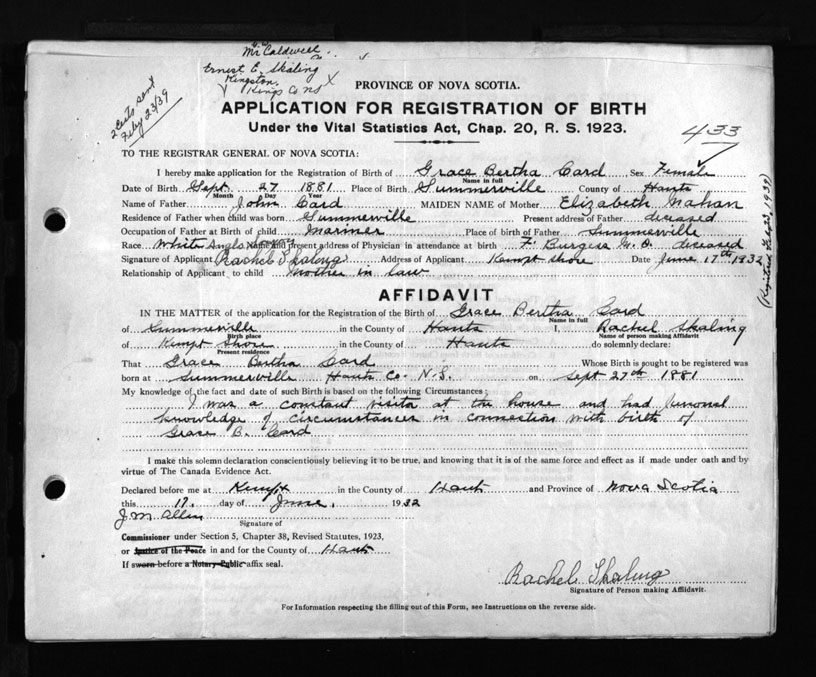 Mr Caldwell
Ernest E. Skaling
Kingston
Kings Co NS
2 Certs sent
Feby 23/39
PROVINCE OF NOVA SCOTIA.
APPLICATION FOR REGISTRATION OF BIRTH
Under the Vital Statistics Act, Chap. 20, R. S. 1923.
433
TO THE REGISTRAR GENERAL OF NOVA SCOTIA:
I hereby make application for the Registration of Birth of Grace Bertha Card Sex Female
Name in full
Date of Birth Sept 27 1881 Place of Birth Summerville County of Hants
Month Day Year
Name of Father John Card MAIDEN NAME of Mother Elizabeth Mahan
Residence of Father when child was born Summerville Present address of Father deceased
Occupation of Father at Birth of Child Mariner Place of birth of Father Summerville
Race White Anglo Name and present address of Physician in attendance at birth F. Burgess M.D. deceased
Signature of Applicant Rachel Skaling Address of Applicant Kempt Shore Date June 17th 1932
Relationship of Applicant to child Mother in law
(Registered Feby 23, 1939)
AFFIDAVIT
IN THE MATTER of the application for the Registration of the Birth of Grace Bertha Card
Name in full
of Summerville in the County of Hants I, Rachel Skaling
Birth place Name of person making Affidavit
of Kempt Shore in the County of Hants do solemnly declare:
Present residence
That Grace Bertha Card Whose Birth is sought to be registered was
born at Summerville Hants Co. N.S. on Sept 27th 1881
My knowledge of the fact and date of such Birth is based on the following Circumstances:
I was a constant visitor at the house and had personal
knowledge of circumstances in connection with birth of
Grace B. Card
I make this solemn declaration conscientiously believing it to be true, and knowing that it is of the same force and effect as if made under oath and by
virtue of The Canada Evidence Act.
Declared before me at Kempt in the County of Hants and Province of Nova Scotia
this 17. day of June. 1932
J.M. Allen
Signature of
Commissioner under Section 5, Chapter 38, Revised Statutes, 1923,
or Justice of the Peace in and for the County of Hants
If sworn before a Notary Public affix seal.
Rachel Skaling
Signature of Person making Affidavit.
For Information respecting the filling out of this Form, see Instructions on the reverse side.